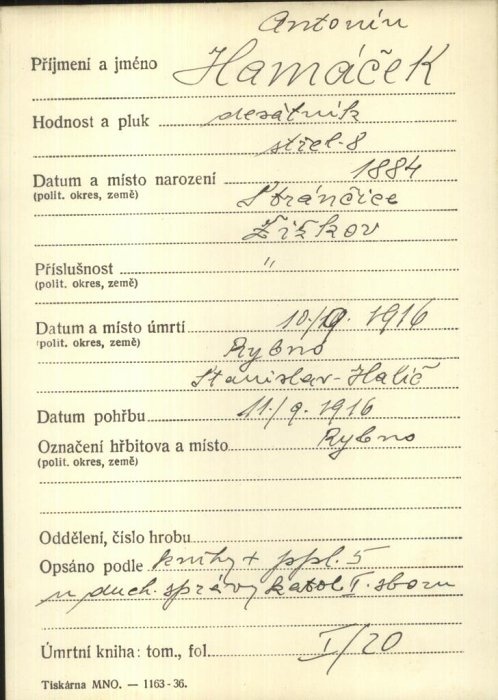 Antonín
Příjmení a jméno Hamáček
Hodnost a pluk desátník
střel. 8
Datum a místo narození 1884
(polit. okres, země) Stránčice
Žižkov
Příslušnost "
(polit. okres, země)
Datum a místo úmrtí 10./9. 1916
(polit. okres, země) Rybno
Stanislav-Halič
Datum pohřbu 11./9. 1916
Označení hřbitova a místo Rybno
(polit. okres, země)
Oddělení, číslo hrobu
Opsáno podle knihy + ppl. 5
u duch. správy katol I. sboru
Úmrtní kniha: tom., fol. I/20
Tiskárna MNO. — 1163-36.